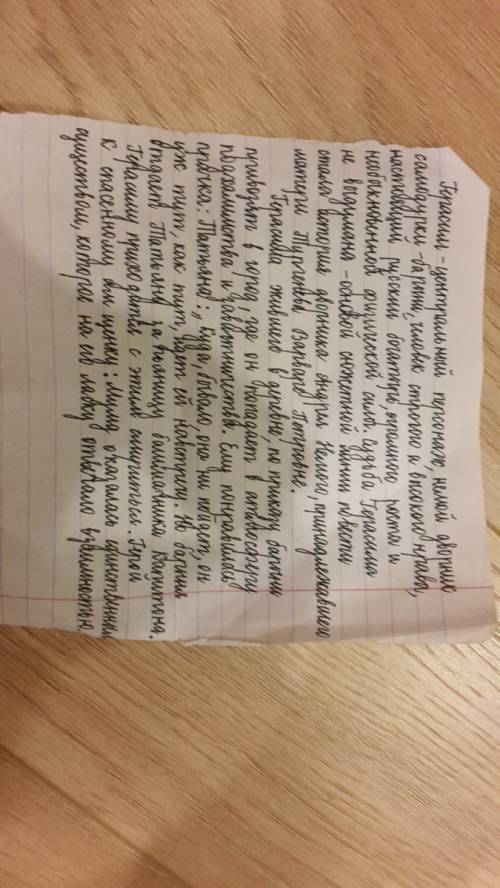 Герасим - центральный персонаж, немой дворник
самодурки-барыни, человек строгого и высокого нрава,
настоящий русский богатырь, огромного роста и
необыкновенной физической силы. Судьба Герасима
не выдумана - основой сюжетной линии повести
стала история дворника Андрея Немого, принадлежавшего
матери Тургенева Варваре Петровне.
Герасима, жившего в деревне, по приказу барыни
привозят в город, где он попадает в атмосферу
подхалимства и завистничества. Ему понравилась
прачка: Татьяна: „Куда, бывало, она ни пойдёт, он
уж тут, как тут, идёт ей навстречу. Но барыня
отдаёт Татьяну за пьяницу башмачника Капитона.
Герасиму приходится с этим смириться. Герой
к спасенному им щенку: Муму оказалась единственным
существом, которое на его ласку отвечало взаимностью